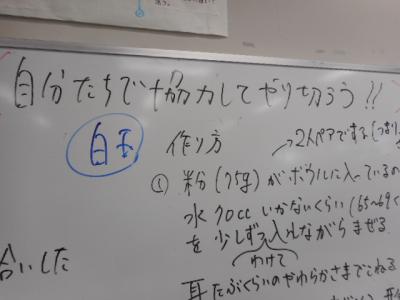 自分たちで協力してやり切ろう!!
白玉
作り方
→2人ペアでする(つまり
① 粉(75g)がボウルに入っているの
水70ccいかないくらい(65~69く
を少しずつ入れながらまぜる
わけて
合いした
耳たぶくらいのやわらかさまでこねる